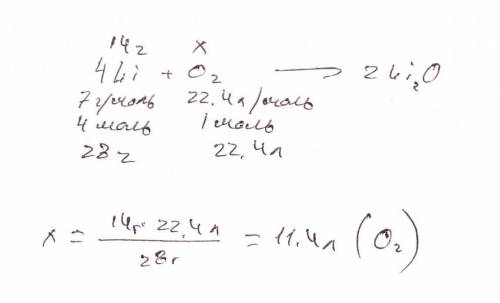 14г x
4Li + O₂ → 2Li₂O
7г/моль 22,4л/моль
4 моль 1 моль
28г 22,4л
x = 14г · 22,4л / 28г = 11.4л (O₂)